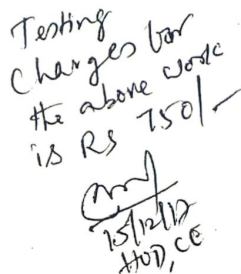 Testing
Charges for
the above work
is RS 750/-
15/12/17
HOD, CE